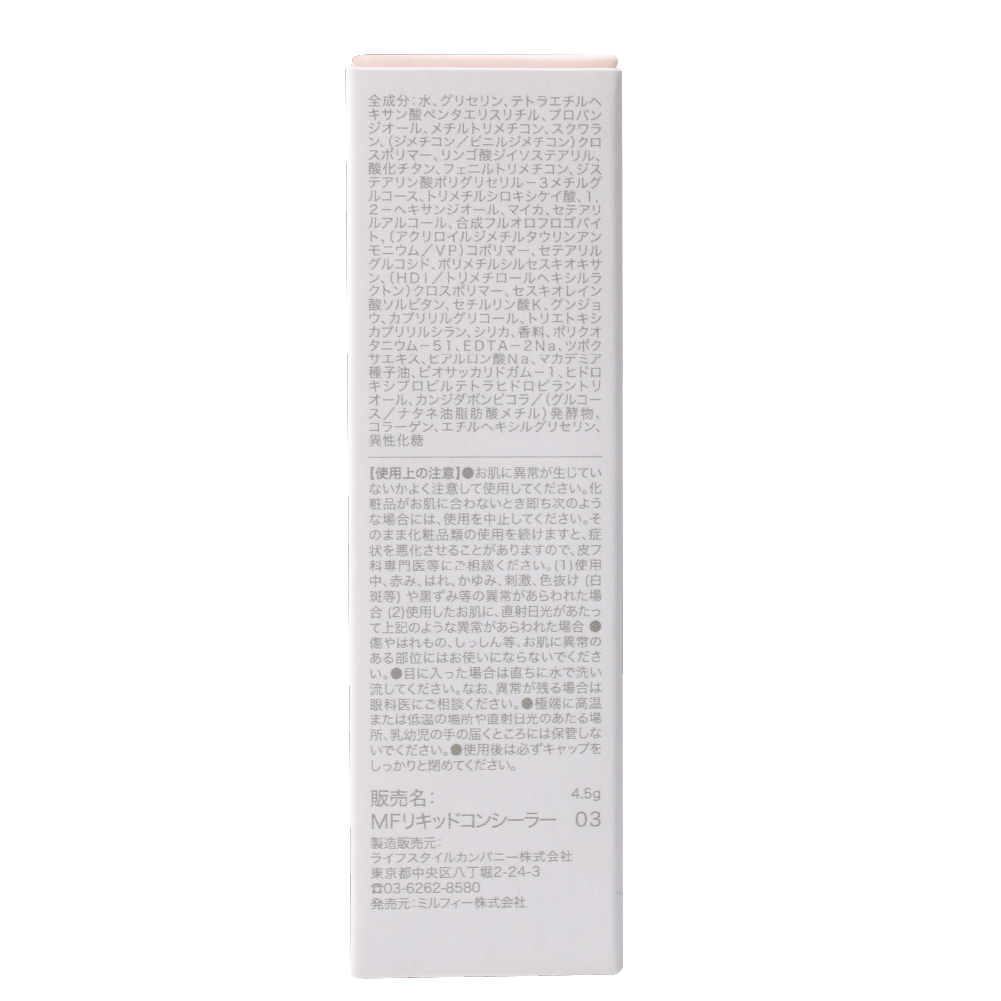 全成分：水、グリセリン、テトラエチルヘ
キサン酸ペンタエリスリチル、プロパン
ジオール、メチルトリメチコン、スクワラ
ン、（ジメチコン／ビニルジメチコン）クロ
スポリマー、リンゴ酸ジイソステアリル、
酸化チタン、フェニルトリメチコン、ジス
テアリン酸ポリグリセリル－3メチルグ
ルコース、トリメチルシロキシケイ酸、1,
2－ヘキサンジオール、マイカ、セテアリ
ルアルコール、合成フルオロフロゴパイ
ト、（アクリロイルジメチルタウリンアン
モニウム／VP）コポリマー、セテアリル
グルコシド、ポリメチルシルセスキオキサ
ン、（HDI／トリメチロールヘキシルラ
クトン）クロスポリマー、セスキオレイン
酸ソルビタン、セチルリン酸K、グンジョ
ウ、カプリリルグリコール、トリエトキシ
カプリリルシラン、シリカ、香料、ポリクオ
タニウム－51、EDTA－2Na、ツボク
サエキス、ヒアルロン酸Na、マカデミア
種子油、ビオサッカリドガム－1、ヒドロ
キシプロピルテトラヒドロピラントリ
オール、カンジダボンビコラ／（グルコー
ス／ナタネ油脂肪酸メチル）発酵物、
コラーゲン、エチルヘキシルグリセリン、
異性化糖
【使用上の注意】●お肌に異常が生じてい
ないかよく注意して使用してください。化
粧品がお肌に合わないとき即ち次のよう
な場合には、使用を中止してください。そ
のまま化粧品類の使用を続けますと、症
状を悪化させることがありますので、皮フ
科専門医等にご相談ください。(1)使用
中、赤み、はれ、かゆみ、刺激、色抜け (白
斑等) や黒ずみ等の異常があらわれた場
合 (2)使用したお肌に、直射日光があたっ
て上記のような異常があらわれた場合 ●
傷やはれもの、しっしん等、お肌に異常の
ある部位にはお使いにならないでくださ
い。●目に入った場合は直ちに水で洗い
流してください。なお、異常が残る場合は
眼科医にご相談ください。●極端に高温
または低温の場所や直射日光のあたる場
所、乳幼児の手の届くところには保管しな
いでください。●使用後は必ずキャップを
しっかりと閉めてください。
販売名： 4.5g
MFリキッドコンシーラー 03
製造販売元：
ライフスタイルカンパニー株式会社
東京都中央区八丁堀2-24-3
☎03-6262-8580
発売元：ミルフィー株式会社